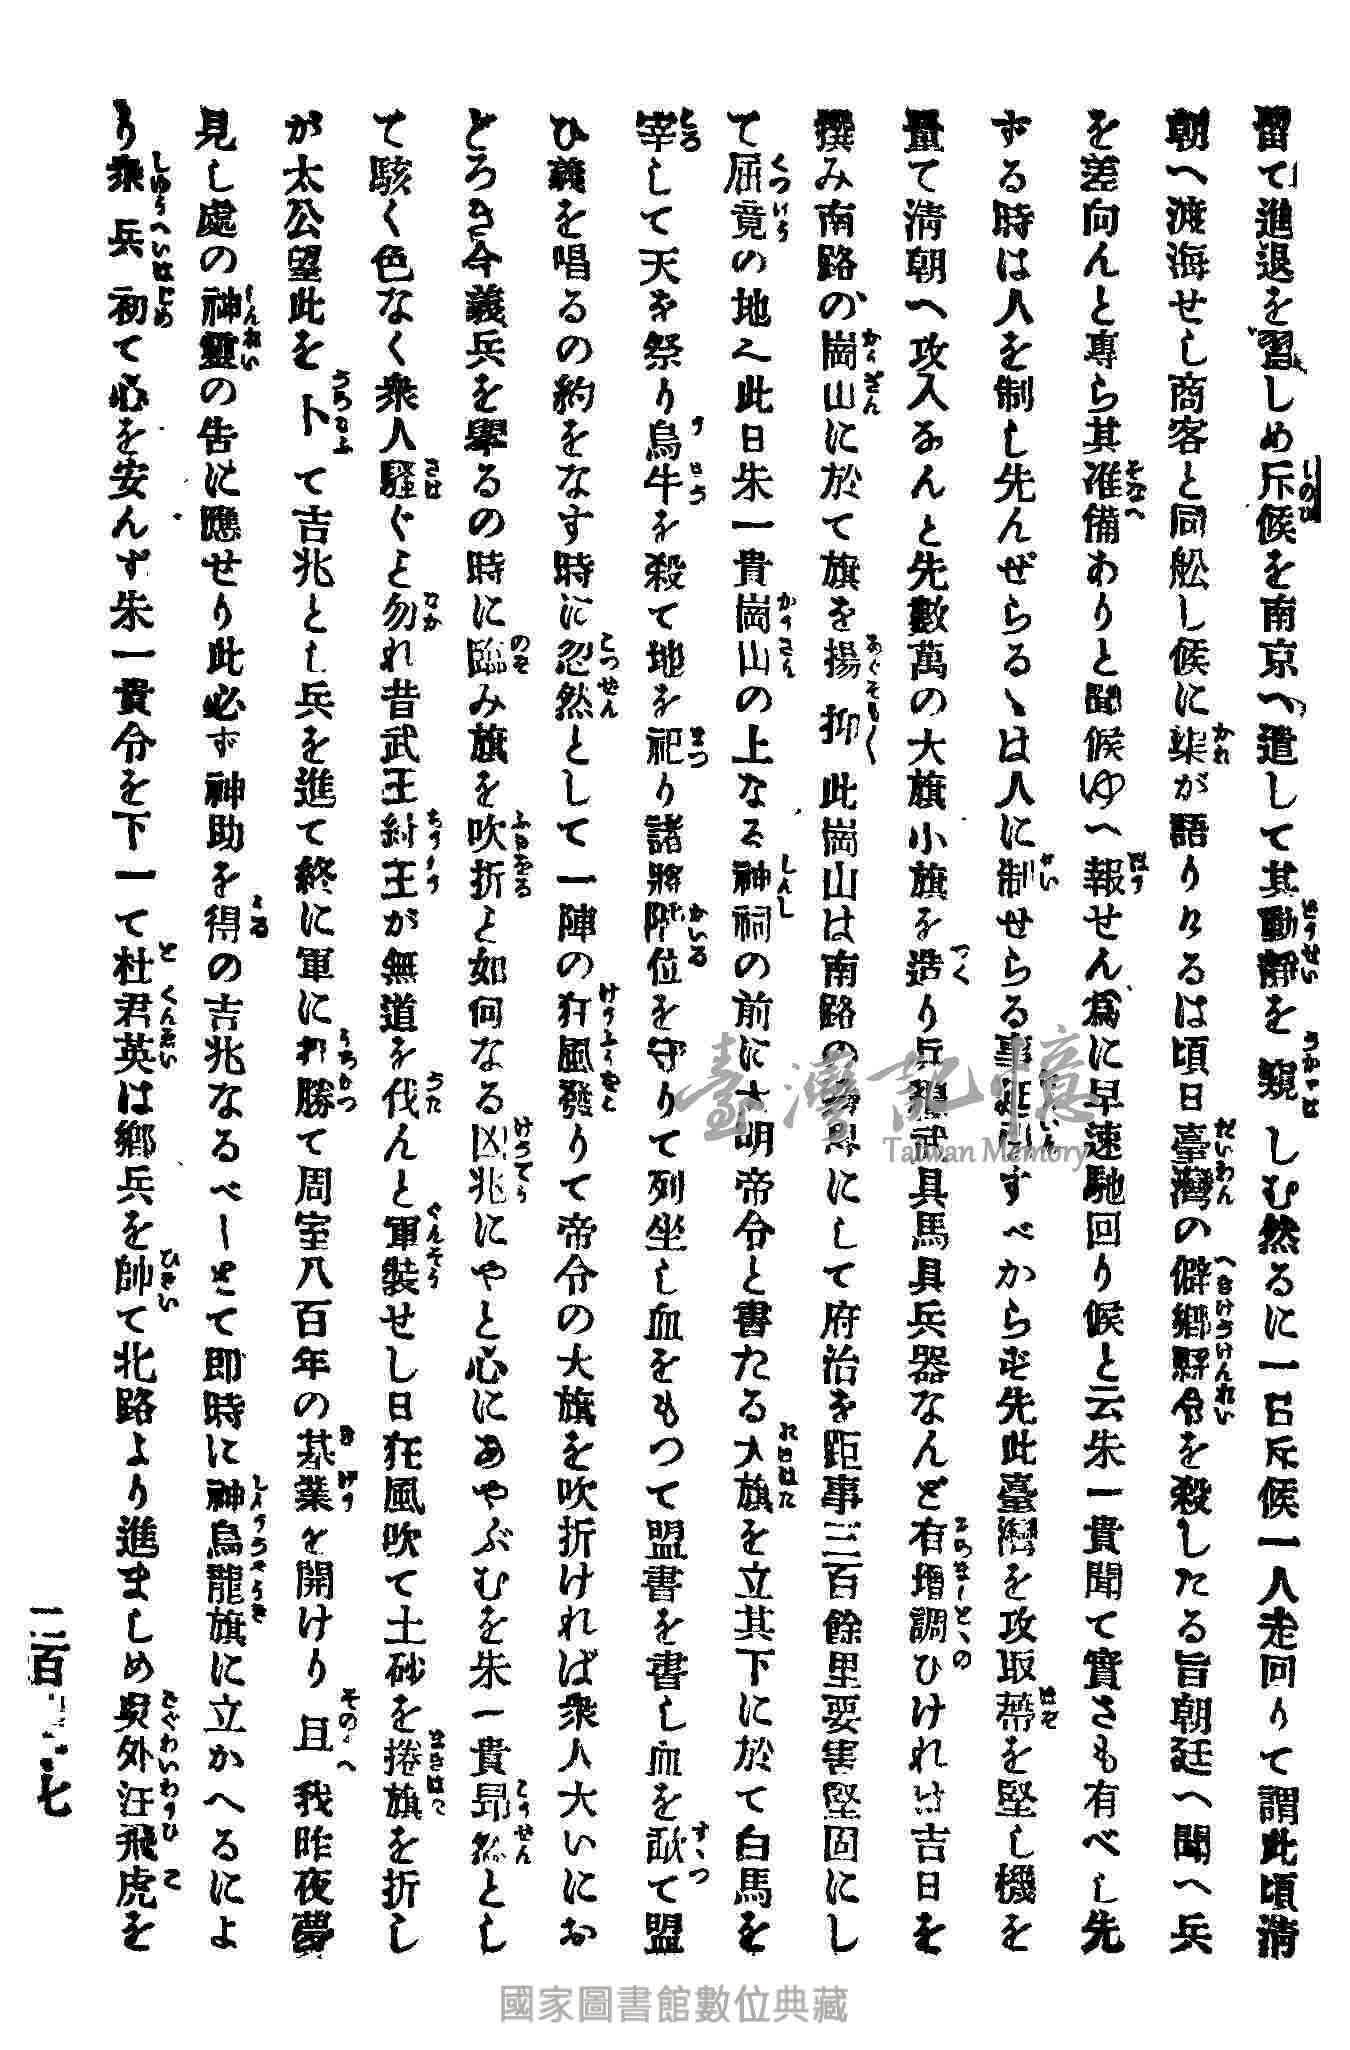 留て進退を習しめ斥候を南京へ遣して其動靜を窺しむ然るに一日斥候一人走回りて謂此頃淸
朝へ渡海せし商客と同舩し候に渠が語りけるは頃日臺灣の僻鄕縣令を殺したる旨朝廷へ聞へ兵
を差向んと專ら其准備ありと聞候ゆへ報せん爲に早速馳回り候と云朱一貴聞て實さも有べし先
ずる時は人を制し先んぜらるゝは人に制せらる事すべからず先此臺灣を攻取蔕を堅し機を
量て淸朝へ攻入なんと先數萬の大旗小旗を造り兵武具馬具兵器なんど有増調ひければ吉日を
撰み南路の崗山に於て旗を揚抑此崗山は南路のにして府治を距事三百餘里要害堅固にし
て屈竟の地也此日朱一貴崗山の上なる神祠の前に大明帝令と書たる大旗を立其下に於て白馬を
宰して天を祭り烏牛を殺て地を祀り諸將階位を守りて列坐し血をもつて盟書を書し血を歃て盟
ひ義を唱るの約をなす時に忽然として一陣の狂風發りて帝令の大旗を吹折ければ衆人大いにお
どろき今義兵を擧るの時に臨み旗を吹折と如何なる凶兆にやと心にあやぶむを朱一貴昂然とし
て駭く色なく衆人騷ぐと勿れ昔武王紂王が無道を伐んと軍裝せし日狂風吹て土砂を捲旗を折し
が太公望此を卜て吉兆とし兵を進て終に軍に打勝て周室八百年の基業を開けり且我昨夜夢
見し處の神靈の告に應せり此必ず神助を得の吉兆なるべしとて卽時に神烏龍旗に立かへるによ
り衆兵初て心を安んず朱一貴令を下して杜君英は鄕兵を帥て北路より進ましめ吳外汪飛虎を
二百七
臺灣記憶
Taiwan Memory
國家圖書館數位典藏